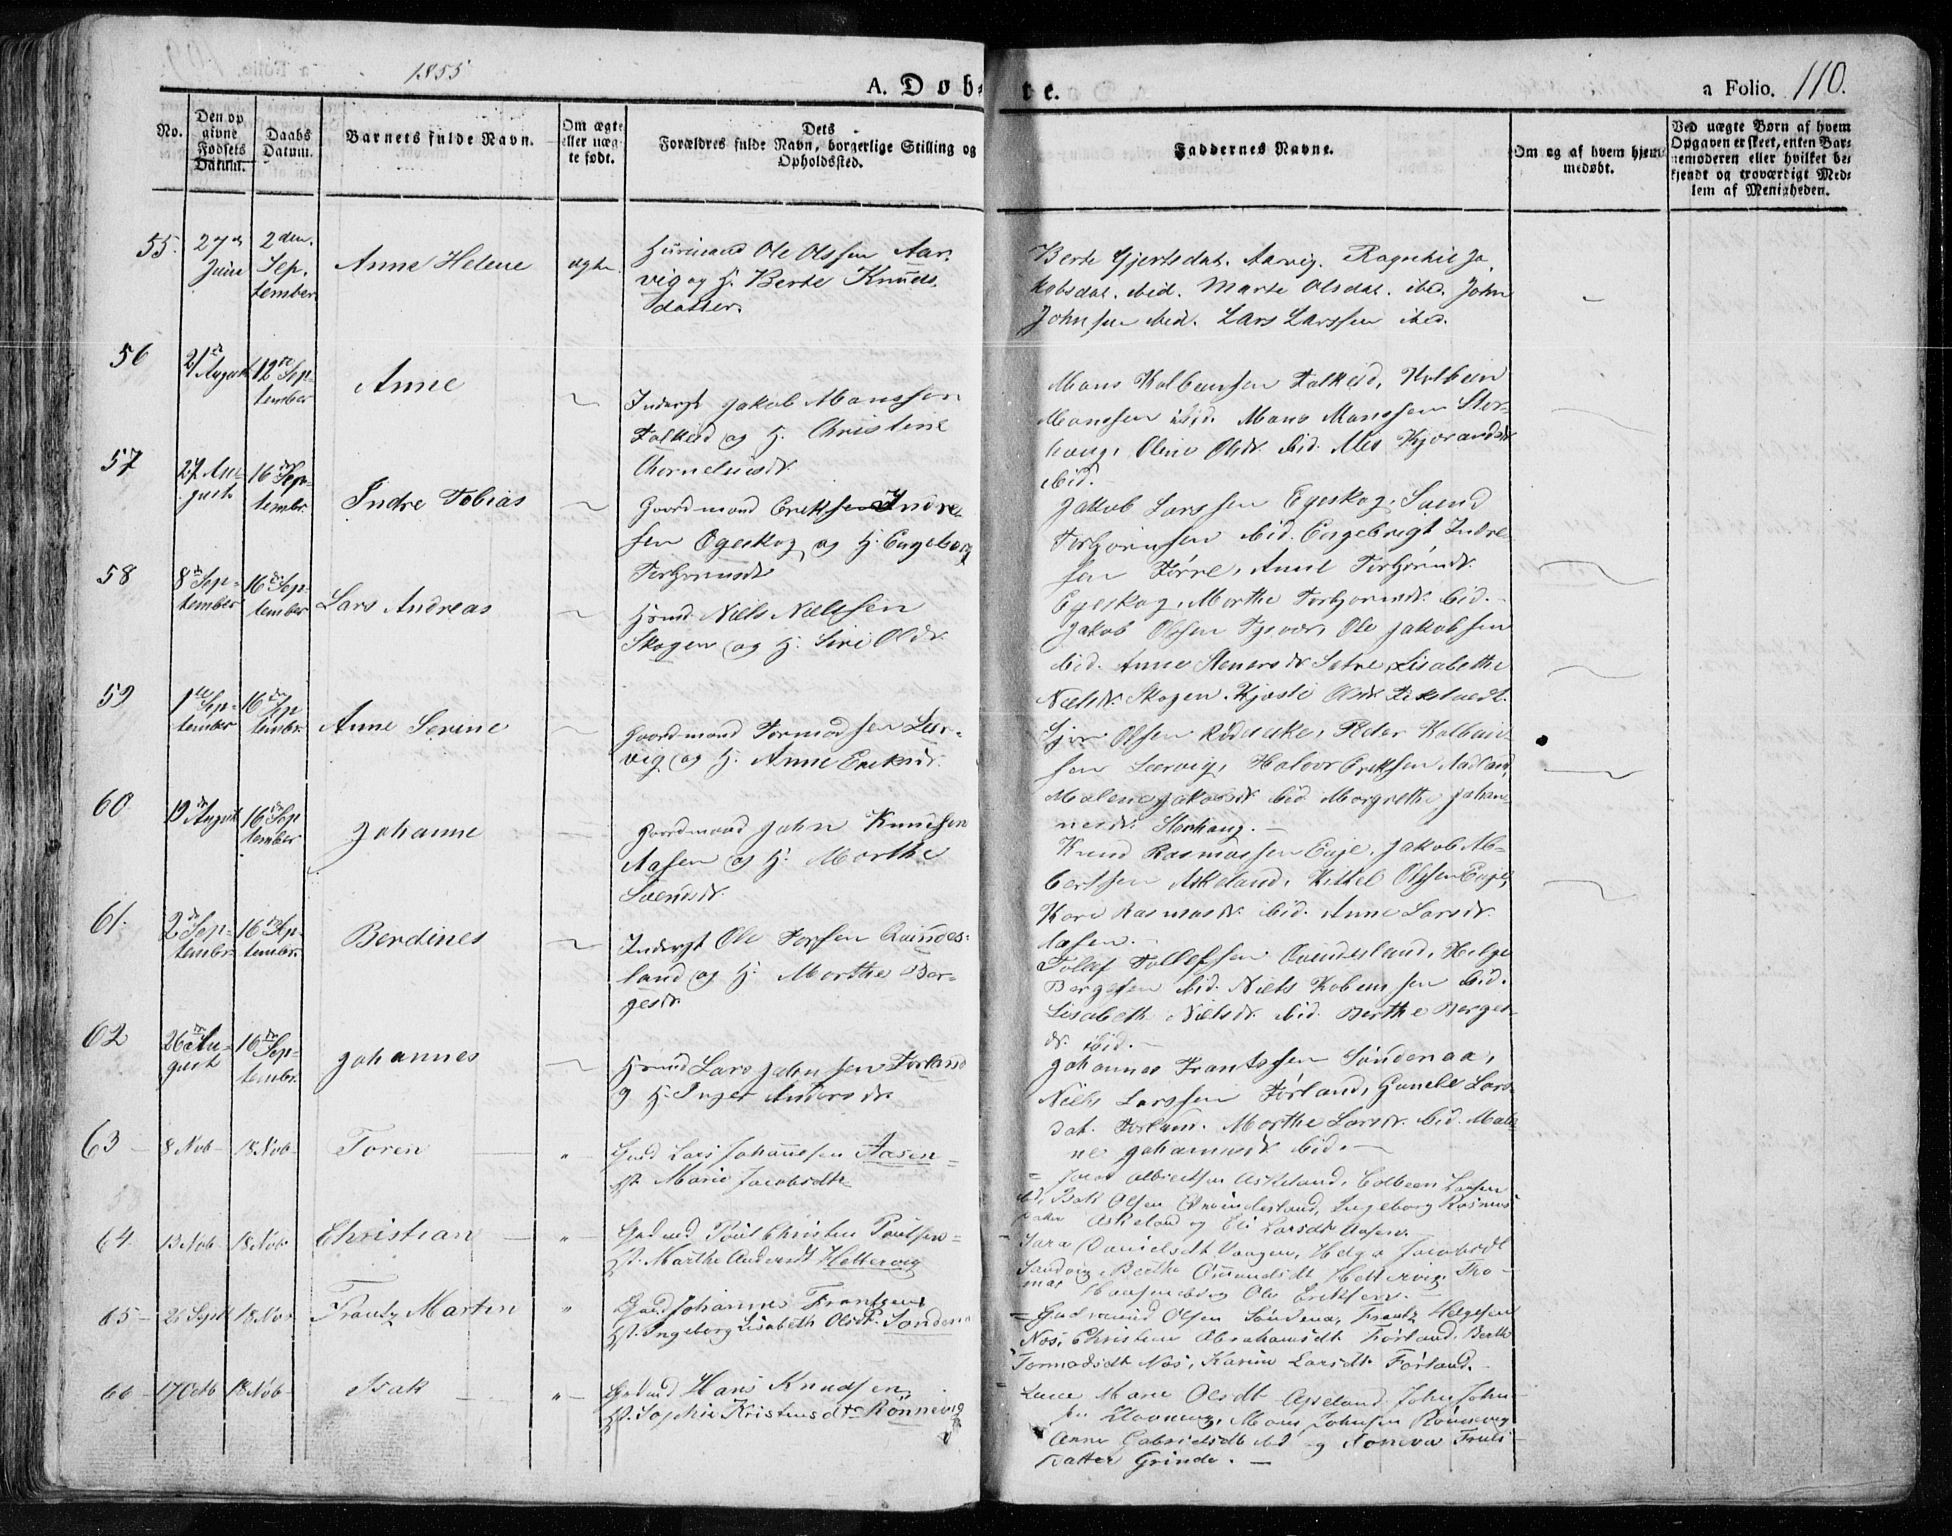 1855
A. Døbte.
a Folio. 110.
No.
Den opgivne Fødsels Datum.
Daabs Datum.
Barnets fulde Navn.
Om ægte eller uægte født.
Dets Forældres fulde Navn, borgerlige Stilling og Opholdssted.
Faddernes Navne.
Om og af hvem hjemmedøbt.
Ved uægte Børn af hvem Opgaven er skeet, enten Barnemoderen eller hvilket bekjendt og troværdigt Medlem af Menigheden.
55. 27de Juni 2den September Anne Helene ægte
Huusmand Ole Olssen Aar-
vig og H. Berte Knuds-
datter.
Berte Gjertsdat. Aarvig. Ragnhil Ja-
kobsdat. ibid. Marte Olsdat. ibid. John
Johnsen ibid. Lars Larssen ibid.
56 21de August 12te September Anne
Inderst Jakob Monssen
Falkeid og H. Christine
Corneliusdr.
Mons Kolbeinsen Falkeid, Kolbein
Monssen ibid. Mons Monssen Stor-
haug, Oline Olsdr. ibid.
ibid.
57 27 August 16de September Indre Tobias
Gaardmand Eriksen Indre-
sen Egeskog og H. Engeborg
Torbjørnsdr
Jakob Larssen Egeskog, Svend
Torbjørnsen ibid. Engebregt Indre-
sen Førre, Anne Torbjørnsdr.
Egeskog, Marthe Torbjørnsdr. ibid.
58 8de September 16de September Lars Andreas
Hsmd. Niels Nielsen
Skogen og H. Siri Olsdr.
Jakob Olssen Tysvær, Ole Jakobsen
ibid. Anne Stenersdr Setre, Lisabethe
Nielsdr. Skogen,
59 1ste September 16de September Anne Serine
Gaardmand Tormodsen Leer-
vig og H. Anne Eriksdr.
Olsen Peder Kolbein-
sen Leervig, Halvor Eriksen Aadland,
Malene Jakobsdr ibid. Margrethe Johan-
nesdr. Storhaug.
60 19de August 16de September Johanne
Gaardmand John Knudsen
Aasen og H. Marthe
Svendsdr.
Knud Rasmussen Eage, Jakob Al-
bertsen Askeland, Kittel Olssen Eage,
Kari Rasmusdr. ibid. Anne Larsdr.
Aasen.
61. 2de September 16de September Berdines
Inderst Ole Torssen Qvindes-
land og H. Marthe Bør-
gesdr
Tollef Tollefssen Qvindesland, Helge
Børgesen ibid. Niels ibid.
Lisabeth Nielsdr. ibid. Berthe Børges-
dr. ibid.
62 26de August 16de September Johannes
Hsmd Lars Johnsen Førland
og H. Inger Andersdr.
Johannes Frantssen Søndenaa,
Niels Larssen Førland, Gunele Lars-
dat. Førland. Marthe Larsdr. ibid. Male-
ne Johannesdr ibid.
63 8 Nob 18 Nob Toren "
Gmd Lars Johannesen Aasen
Hst. Marie Jacobsdtr
Jacob Albertsen Askeland, Colbeen Larsen
ibid. Olsen Qvindesland, Ingeborg Rasmus
datter Askeland og Eli Larsdtr Aasen.
64. 13 Nob 18 Nob Christian "
Gaardmd Poul Christen Poulsen
Hst. Marthe Andersdt Hettervig
Sara Danielsdt Vaagen, Helga Jacobsdt
Sandvig, Berthe Amundsdt Hettervig Tho-
mas og Ole Eriksen.
65 21 Sept 18 Nov Frantz Martin "
Gaardmd Johannes Frantzen
Hst. Ingeborg Lisabeth Olsdt. Søndena
Gudmund Olsen Søndena, Frantz Helgesen
Nos, Christine Abrahamsdt Førland, Berthe
Tormodsdt Nos, Karine Larsdt Førland.
66 17 Octb 18 Nob Isak "
Gaardmd Hans Knudsen
Hst. Sophie Kristensdtr Rønnevig
Marie Olsdt Apeland, John John-
sen Mons Johnsen Rønnevig
Anne Gabrielsdt ibid og Truls-
datter Grinde.